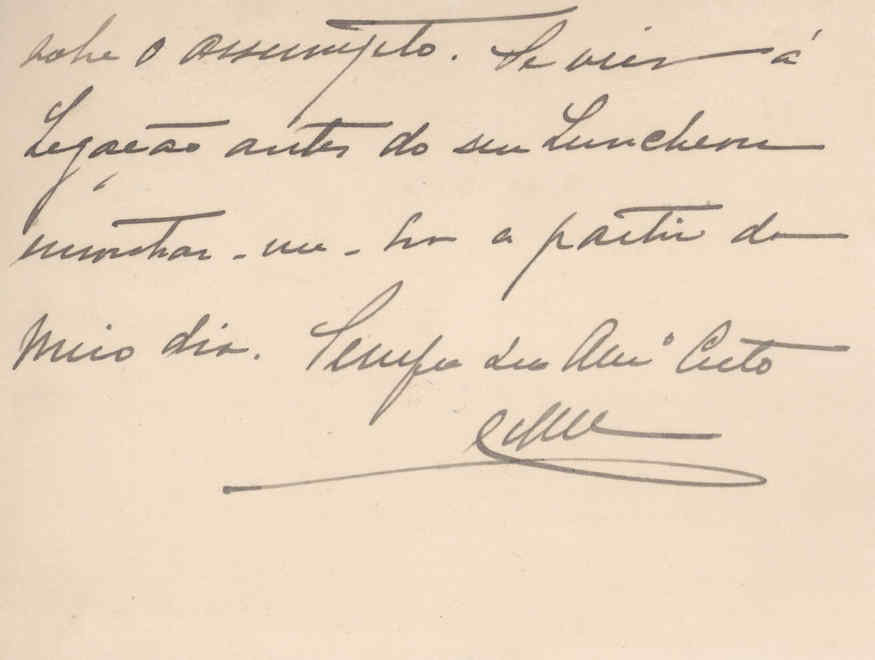 sobre o assumpto. Se vier á
Legação antes do seu Luncheon
encontrar-me-ha a partir do
Meio dia. Sempre seu Am.º Certo